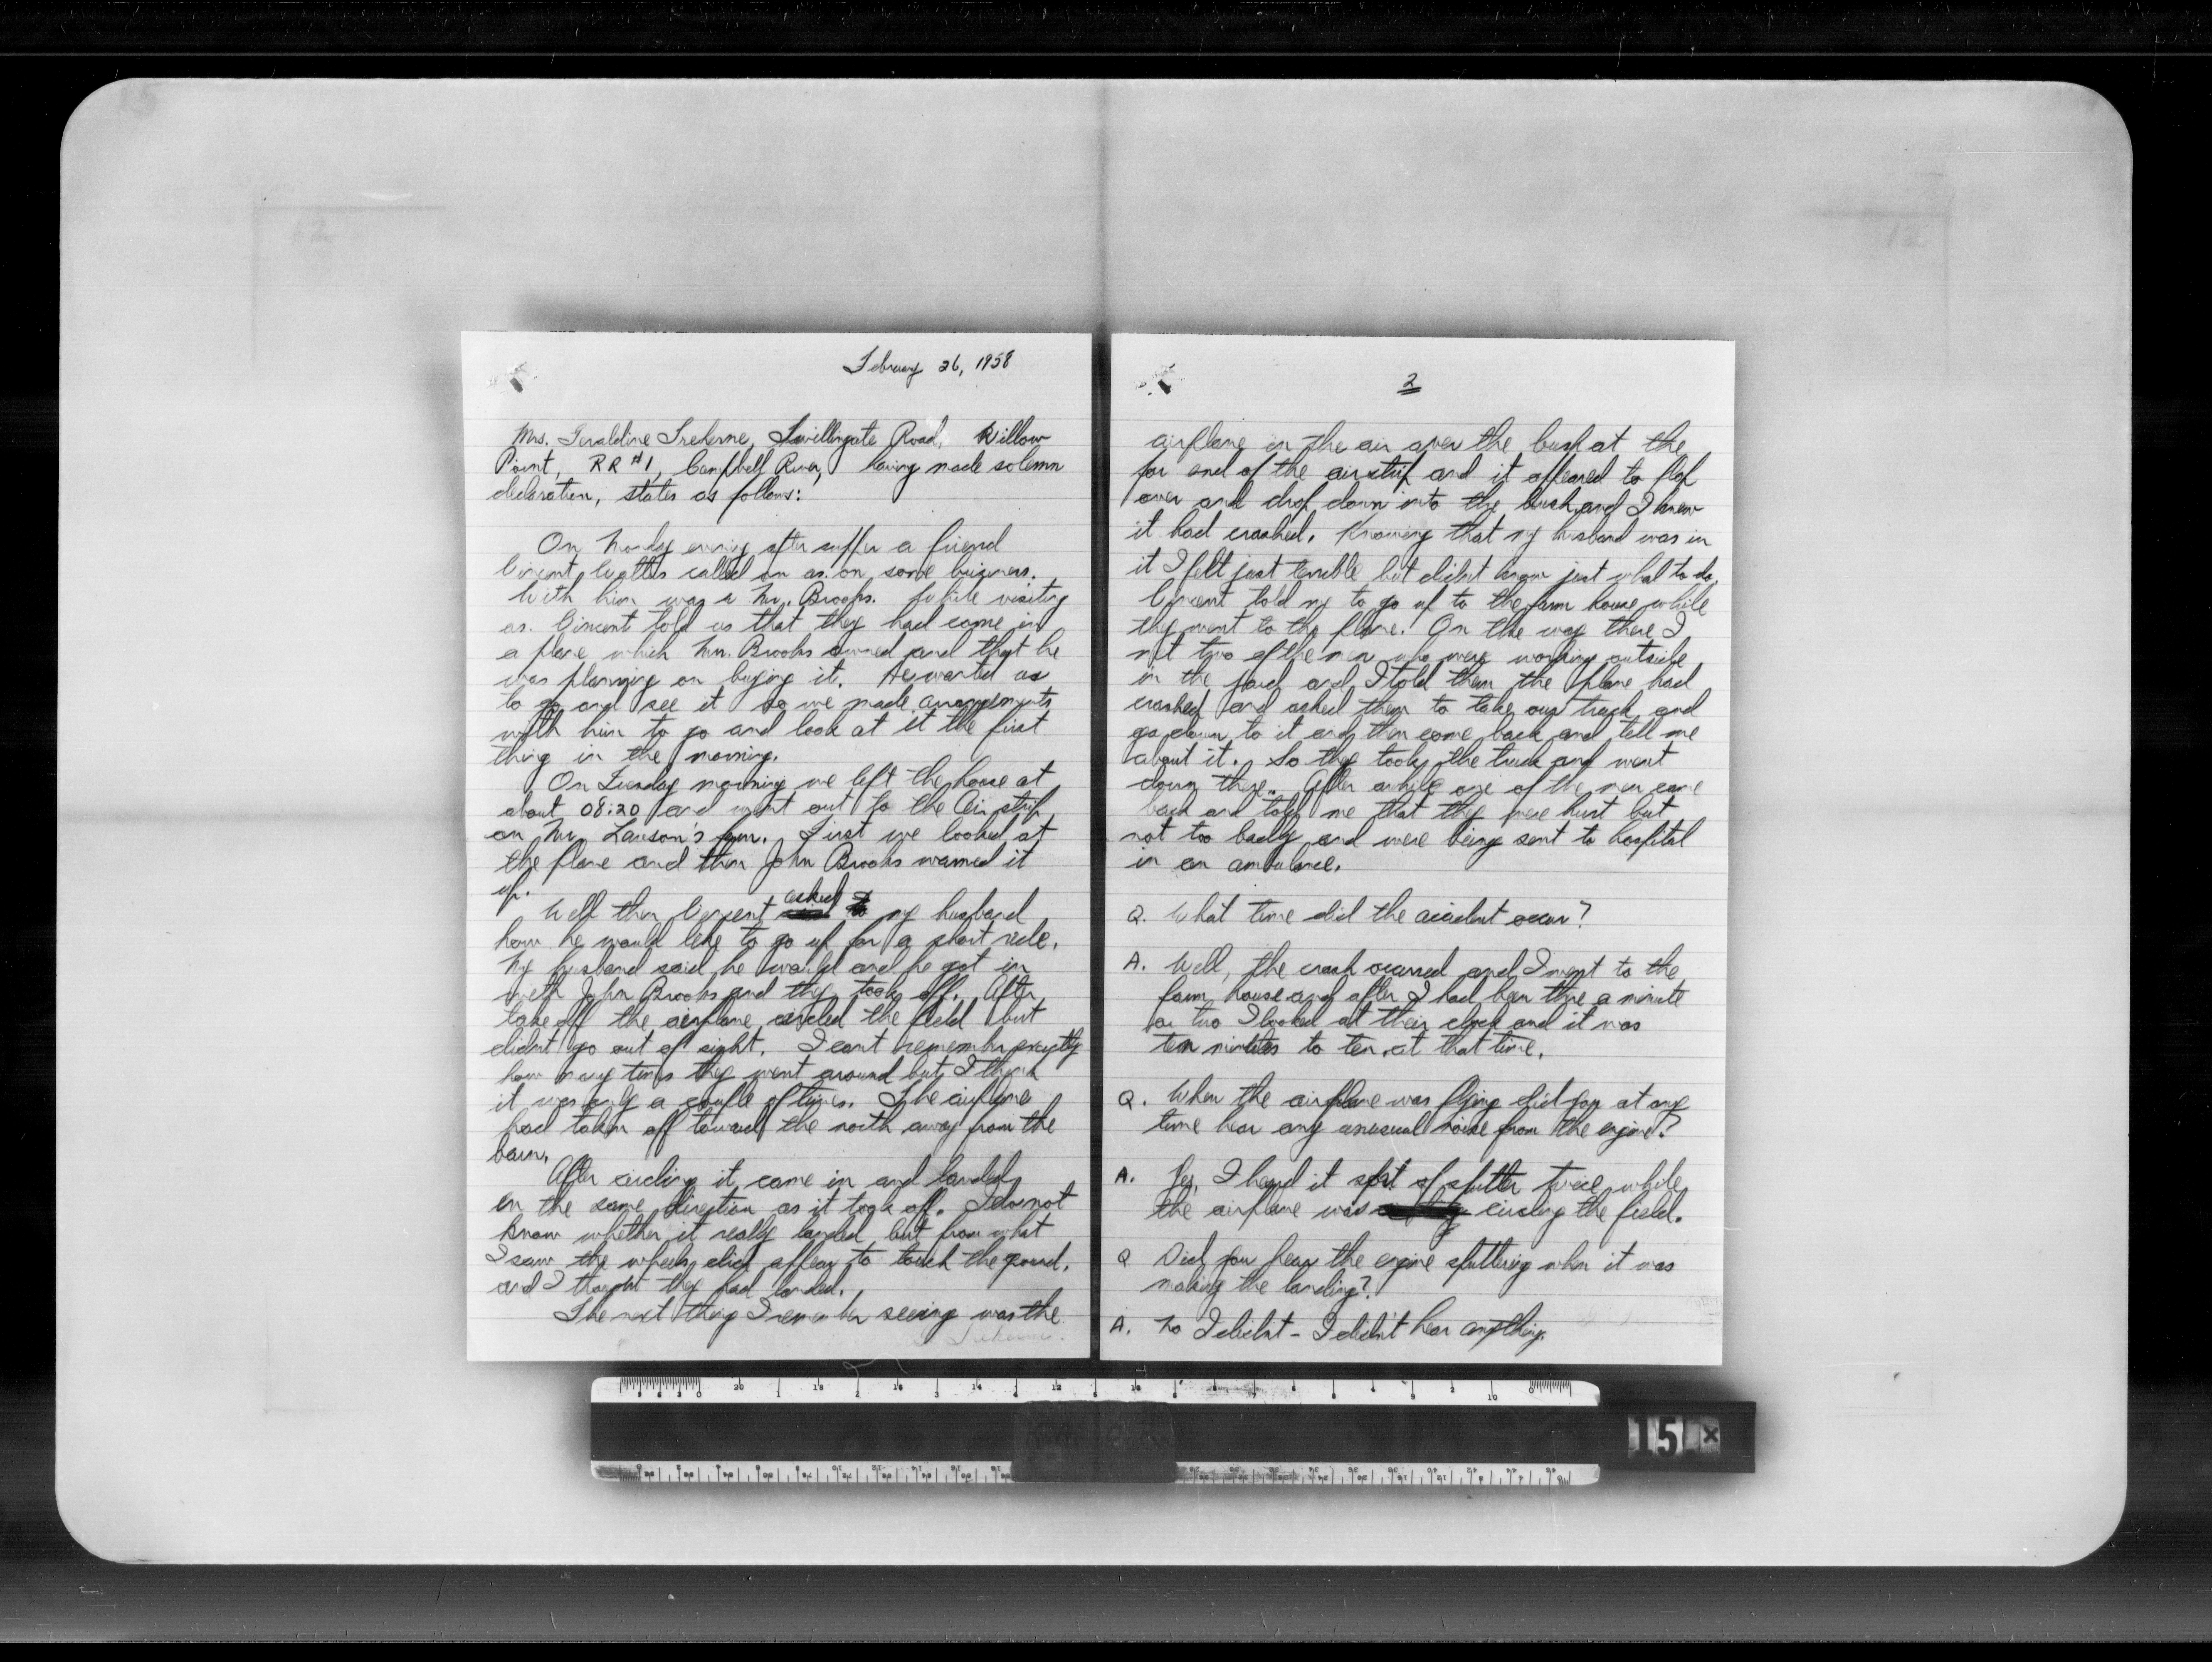 February 26, 1958
Mrs. Geraldine Treherne, Twillingate Road, Willow
Point, RR #1, Campbell River, having made solemn
declaration, states as follows:
On Monday evening after supper a friend
Vincent Watts called on us on some business.
With him was a Mr. Brooks. While visiting
us. Vincent told us that they had come in
a plane which Mr. Brooks owned and that he
was planning on buying it. He wanted us
to go and see it so we made arrangements
with him to go and look at it the first
thing in the morning.
On Tuesday morning we left the house at
about 08:20 and went out to the Air strip
on Mr. Lawson's farm. First we looked at
the plane and then John Brooks warmed it
up.
Well then Vincent asked my husband
how he would like to go up for a short ride.
My husband said he would and he got in
with John Brooks and they took off. After
take off the airplane circled the field but
didnt go out of sight. I cant remember exactly
how many times they went around but I think
it was only a couple of times. The airplane
had taken off toward the north away from the
barn.
After circling it came in and landed
in the same direction as it took off. I do not
know whether it really landed but from what
I saw the wheels did appear to touch the ground.
and I thought they had landed.
The next thing I remember seeing was the
2
airplane in the air over the bush at the
far end of the airstrip and it appeared to flop
over and drop down into the bush and I knew
it had crashed. Knowing that my husband was in
it I felt just terrible but didnt know just what to do.
Vincent told my to go up to the farm house while
they went to the plane. On the way there I
met two of the men who were working outside
in the yard and I told them the plane had
crashed and asked them to take our truck and
go down to it and then come back and tell me
about it. So they took the truck and went
down there. After awhile one of the men came
back and told me that they were hurt but
not too badly and were being sent to hospital
in an ambulance.
Q. What time did the accident occur?
A. Well, the crash occurred and I went to the
farm house and after I had been there a minute
or two I looked at their clock and it was
ten minutes to ten at that time.
Q. When the airplane was flying did you at any
time hear any unusual noise from the engine?
A. Yes, I heard it sort of sputter twice while
the airplane was circling the field.
Q Did you hear the engine sputtering when it was
making the landing?
A. No I didnt - I didn't hear anything.
15 x